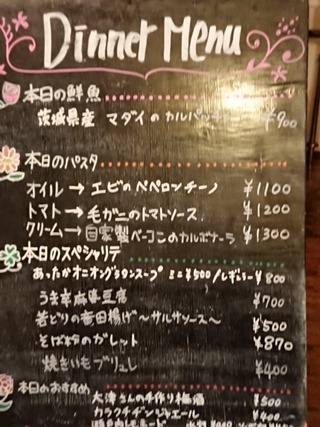 Dinner Menu
本日の鮮魚
茨城県産 マダイのカルパッチョ ¥900
本日のパスタ
オイル→エビのペペロンチーノ ¥1100
トマト→毛ガニのトマトソース ¥1200
クリーム→自家製ベーコンのカルボナーラ ¥1300
本日のスペシャリテ
あったかオニオングラタンスープ ミニ¥500/レギュラー¥800
うま辛麻婆豆腐 ¥700
若どりの竜田揚げ〜サルサソース〜 ¥500
そば粉のガレット ¥870
焼きいもブリュレ ¥400
本日のおすすめ
大津さんの手作り梅酒 ¥500
カラクチジンジャエール ¥400